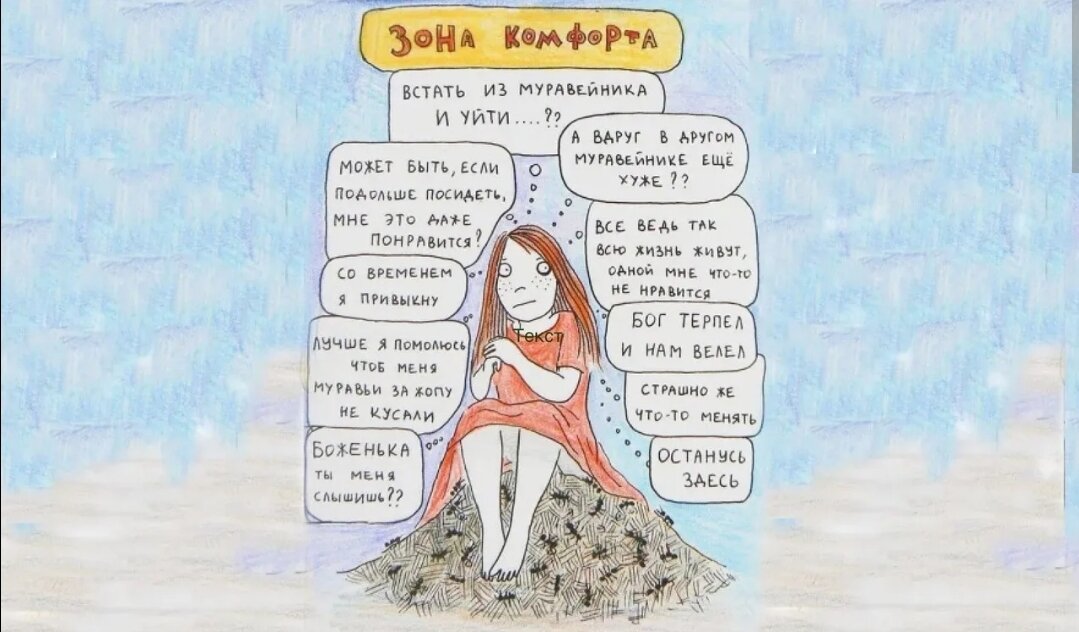 ЗОНА КОМФОРТА
ВСТАТЬ ИЗ МУРАВЕЙНИКА
И УЙТИ....??
А ВДРУГ В ДРУГОМ
МУРАВЕЙНИКЕ ЕЩЁ
ХУЖЕ??
МОЖЕТ БЫТЬ, ЕСЛИ
ПОДОЛЬШЕ ПОСИДЕТЬ,
МНЕ ЭТО ДАЖЕ
ПОНРАВИТСЯ?
ВСЕ ВЕДЬ ТАК
ВСЮ ЖИЗНЬ ЖИВУТ,
ОДНОЙ МНЕ ЧТО-ТО
НЕ НРАВИТСЯ
СО ВРЕМЕНЕМ
Я ПРИВЫКНУ
БОГ ТЕРПЕЛ
И НАМ ВЕЛЕЛ
ЛУЧШЕ Я ПОМОЛЮСЬ
ЧТОБ МЕНЯ
МУРАВЬИ ЗА ЖОПУ
НЕ КУСАЛИ
Текст
СТРАШНО ЖЕ
ЧТО-ТО МЕНЯТЬ
БОЖЕНЬКА
ТЫ МЕНЯ
СЛЫШИШЬ??
ОСТАНУСЬ
ЗДЕСЬ